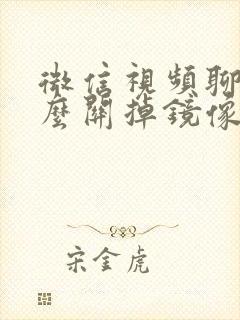 微信視頻聊
麼關掉鏡像
宋金虎